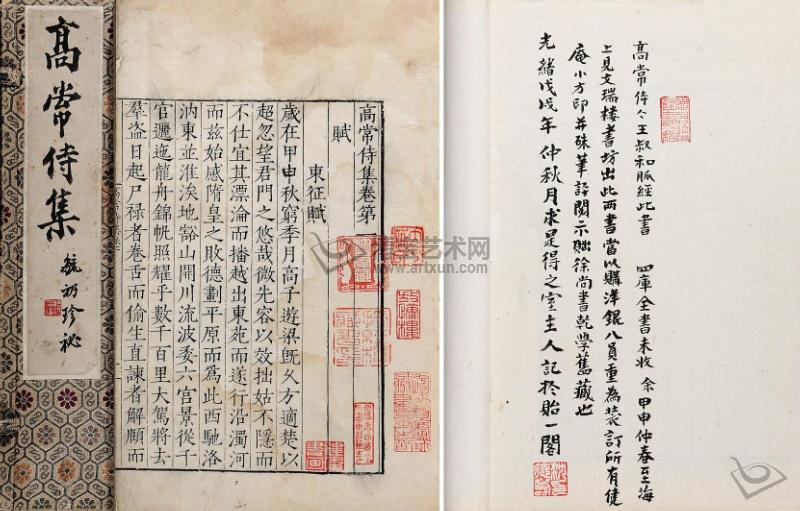 高常侍集
珍祕
高常侍集卷第一
賦
東征賦
歲在甲申秋窮季月高子遊梁旣久方適楚以
超忽望君門之悠哉微先容以效拙姑不隱而
不仕宜其漂淪而播越出東苑而遂行沿濁河
而茲始感隋皇之敗德劃平原而爲此西馳洛
汭東並淮涘地豁山開川流波委六宮景從千
官邐迤龍舟錦帆照耀乎數千百里大駕將去
羣盗日起尸禄者卷舌而偷生直諫者解頤而
高常侍々王叔和脈經此書 四庫全書未收 余甲申仲春至海
上見文瑞楼書坊出此两書當以購洋銀八員重為裝訂所有健
庵小方印并硃筆評閱示貽徐尚書乾學舊藏也
光緒戊戌年仲秋月求是得之室主人記於貽一閣
博宝艺术网
www.artxun.com